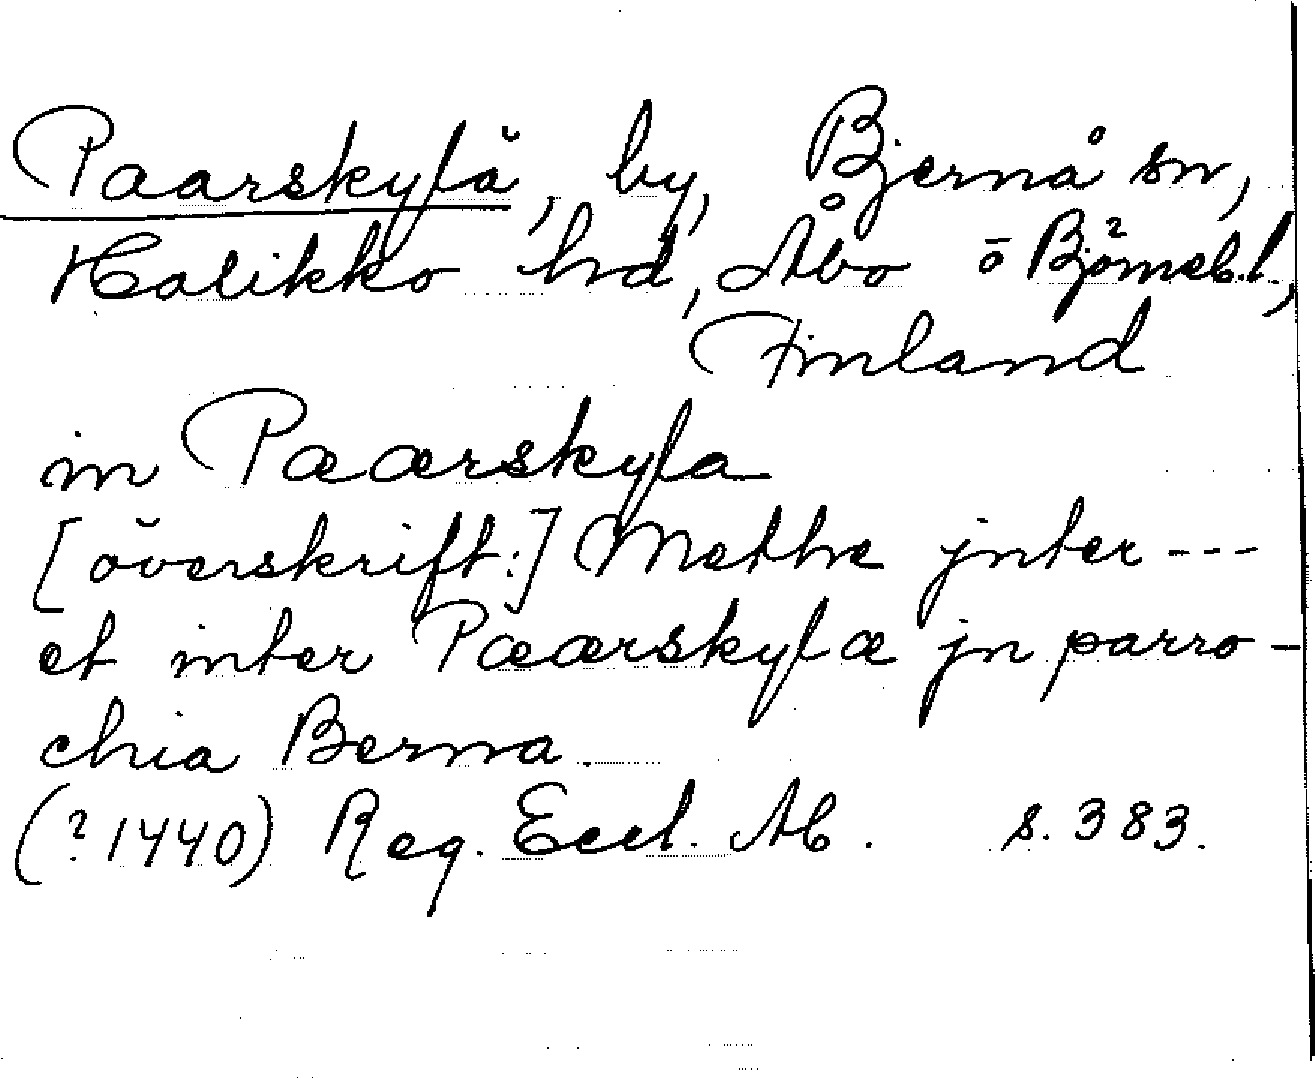 Paarskylä, by, Bjernå sn,
Halikko hd, Åbo o Björneb.l.,
Finland
in Pæærskyla
[överskrift:] Methe jnter ---
et inter Pæærskylæ jn parro-
chia Berna.
(? 1440) Reg. Eccl. Ab. s. 383.